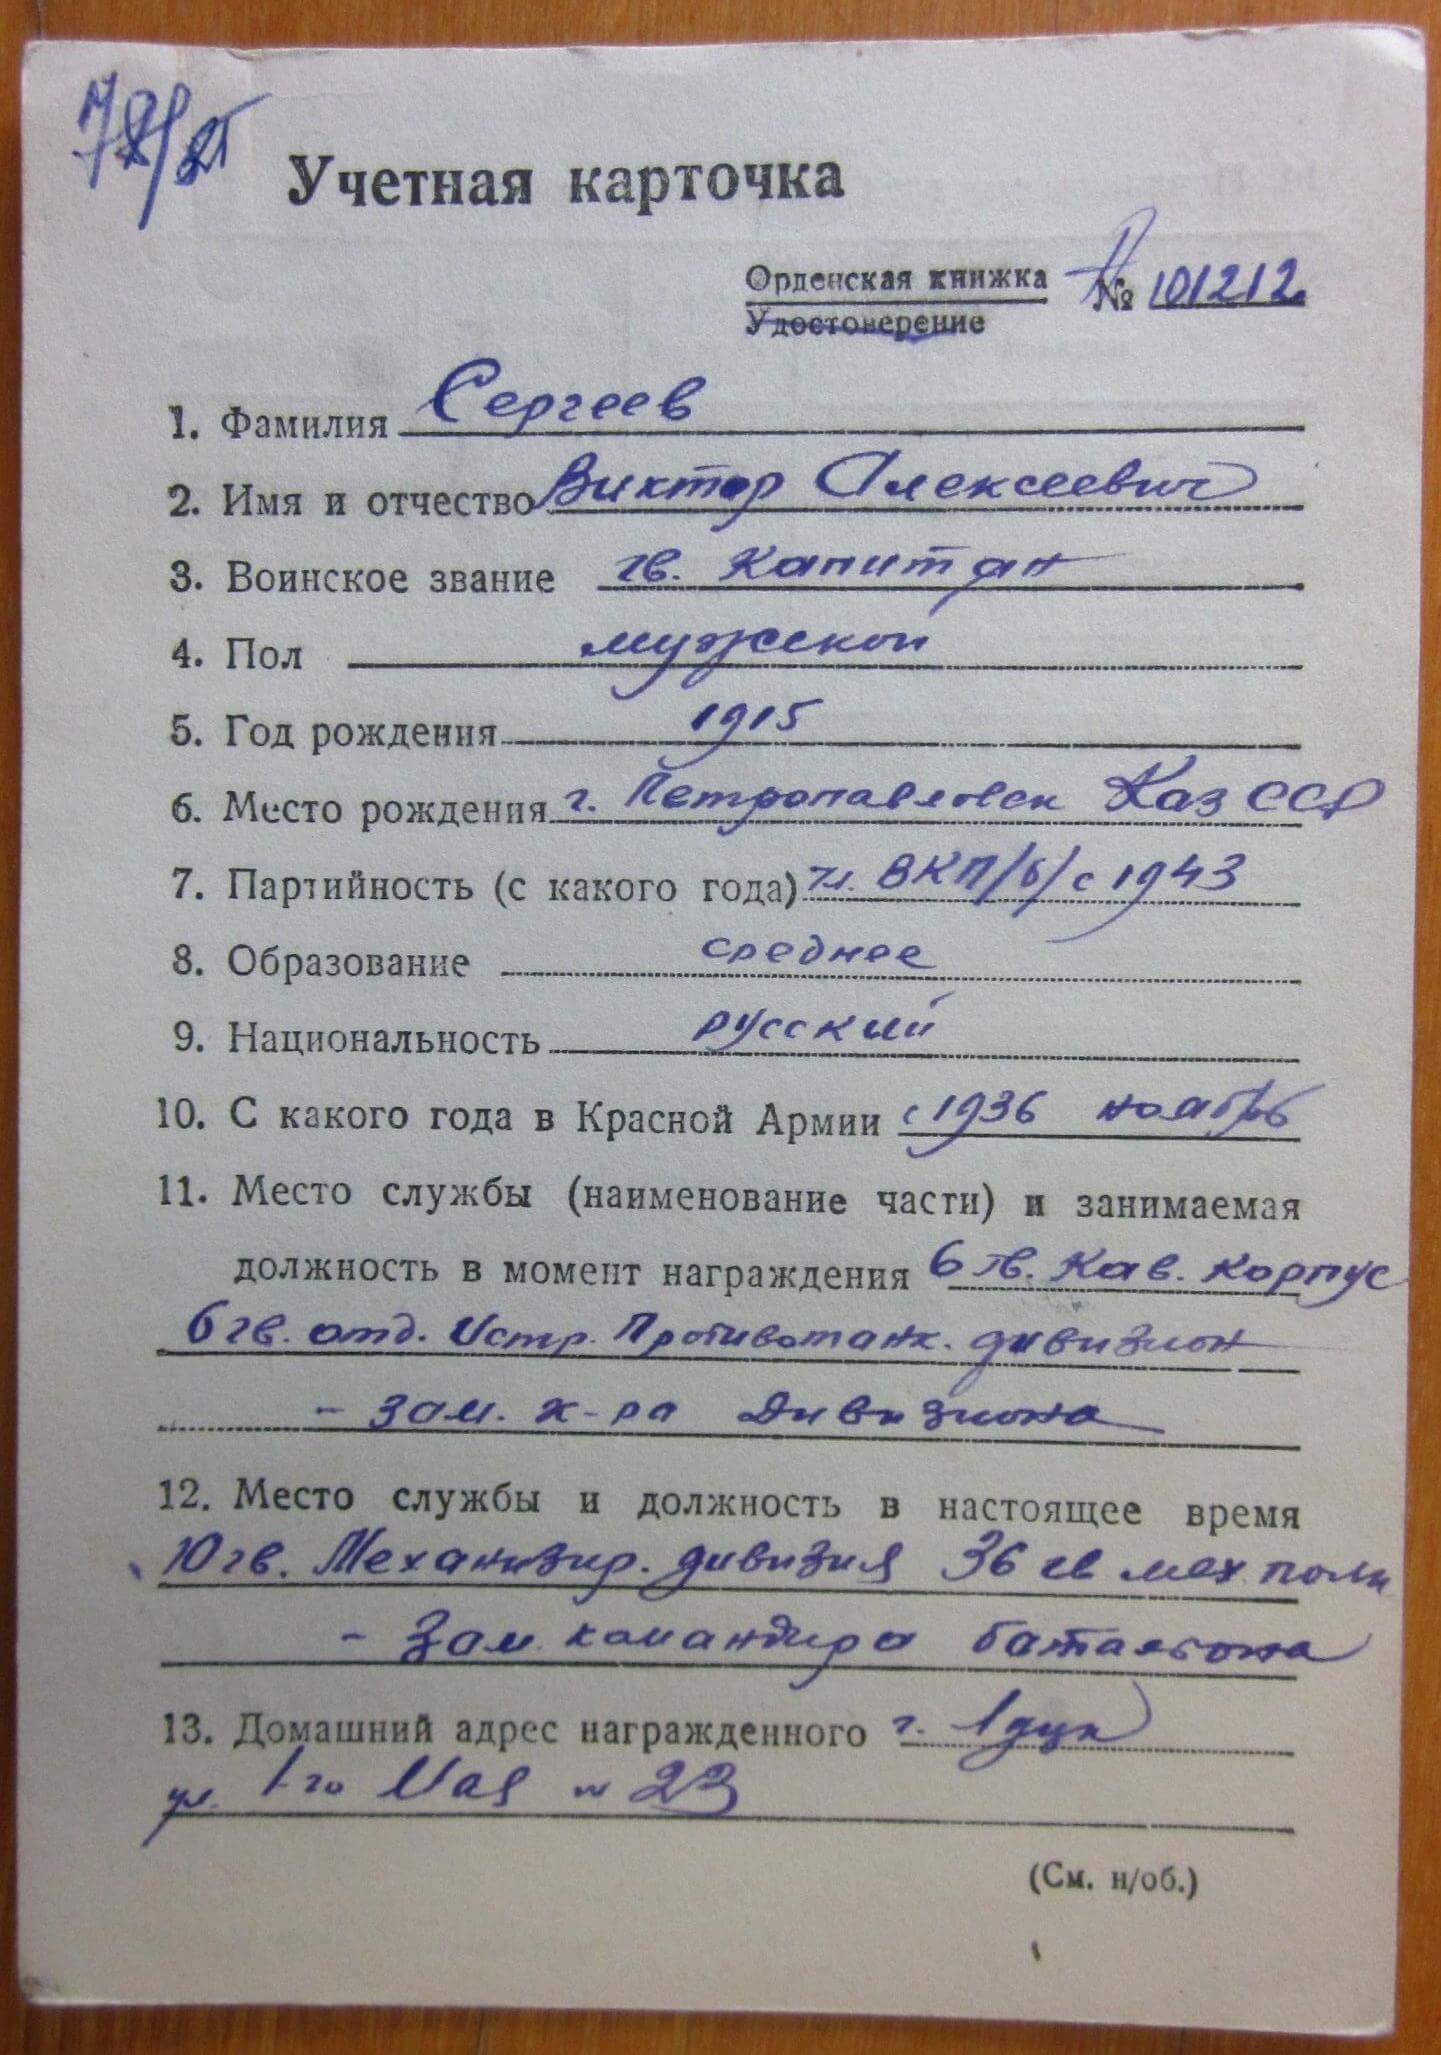 Учетная карточка
Орденская книжка А № 101212
Удостоверение
1. Фамилия Сергеев
2. Имя и отчество Виктор Алексеевич
3. Воинское звание гв. капитан
4. Пол мужской
5. Год рождения 1915
6. Место рождения г. Петропавловск Каз ССР
7. Партийность (с какого года) чл. ВКП/б/ с 1943
8. Образование среднее
9. Национальность русский
10. С какого года в Красной Армии с 1936 ноябрь
11. Место службы (наименование части) и занимаемая
должность в момент награждения 6 гв. Кав. корпус
6 гв. отд. Истр. Противотанк. дивизион
- зам. к-ра дивизиона
12. Место службы и должность в настоящее время
10 гв. Механизир. дивизия 36 гв мех. полк
- Зам. командира батальона
13. Домашний адрес награжденного г. Луцк
ул. 1го Мая № 23
(См. н/об.)